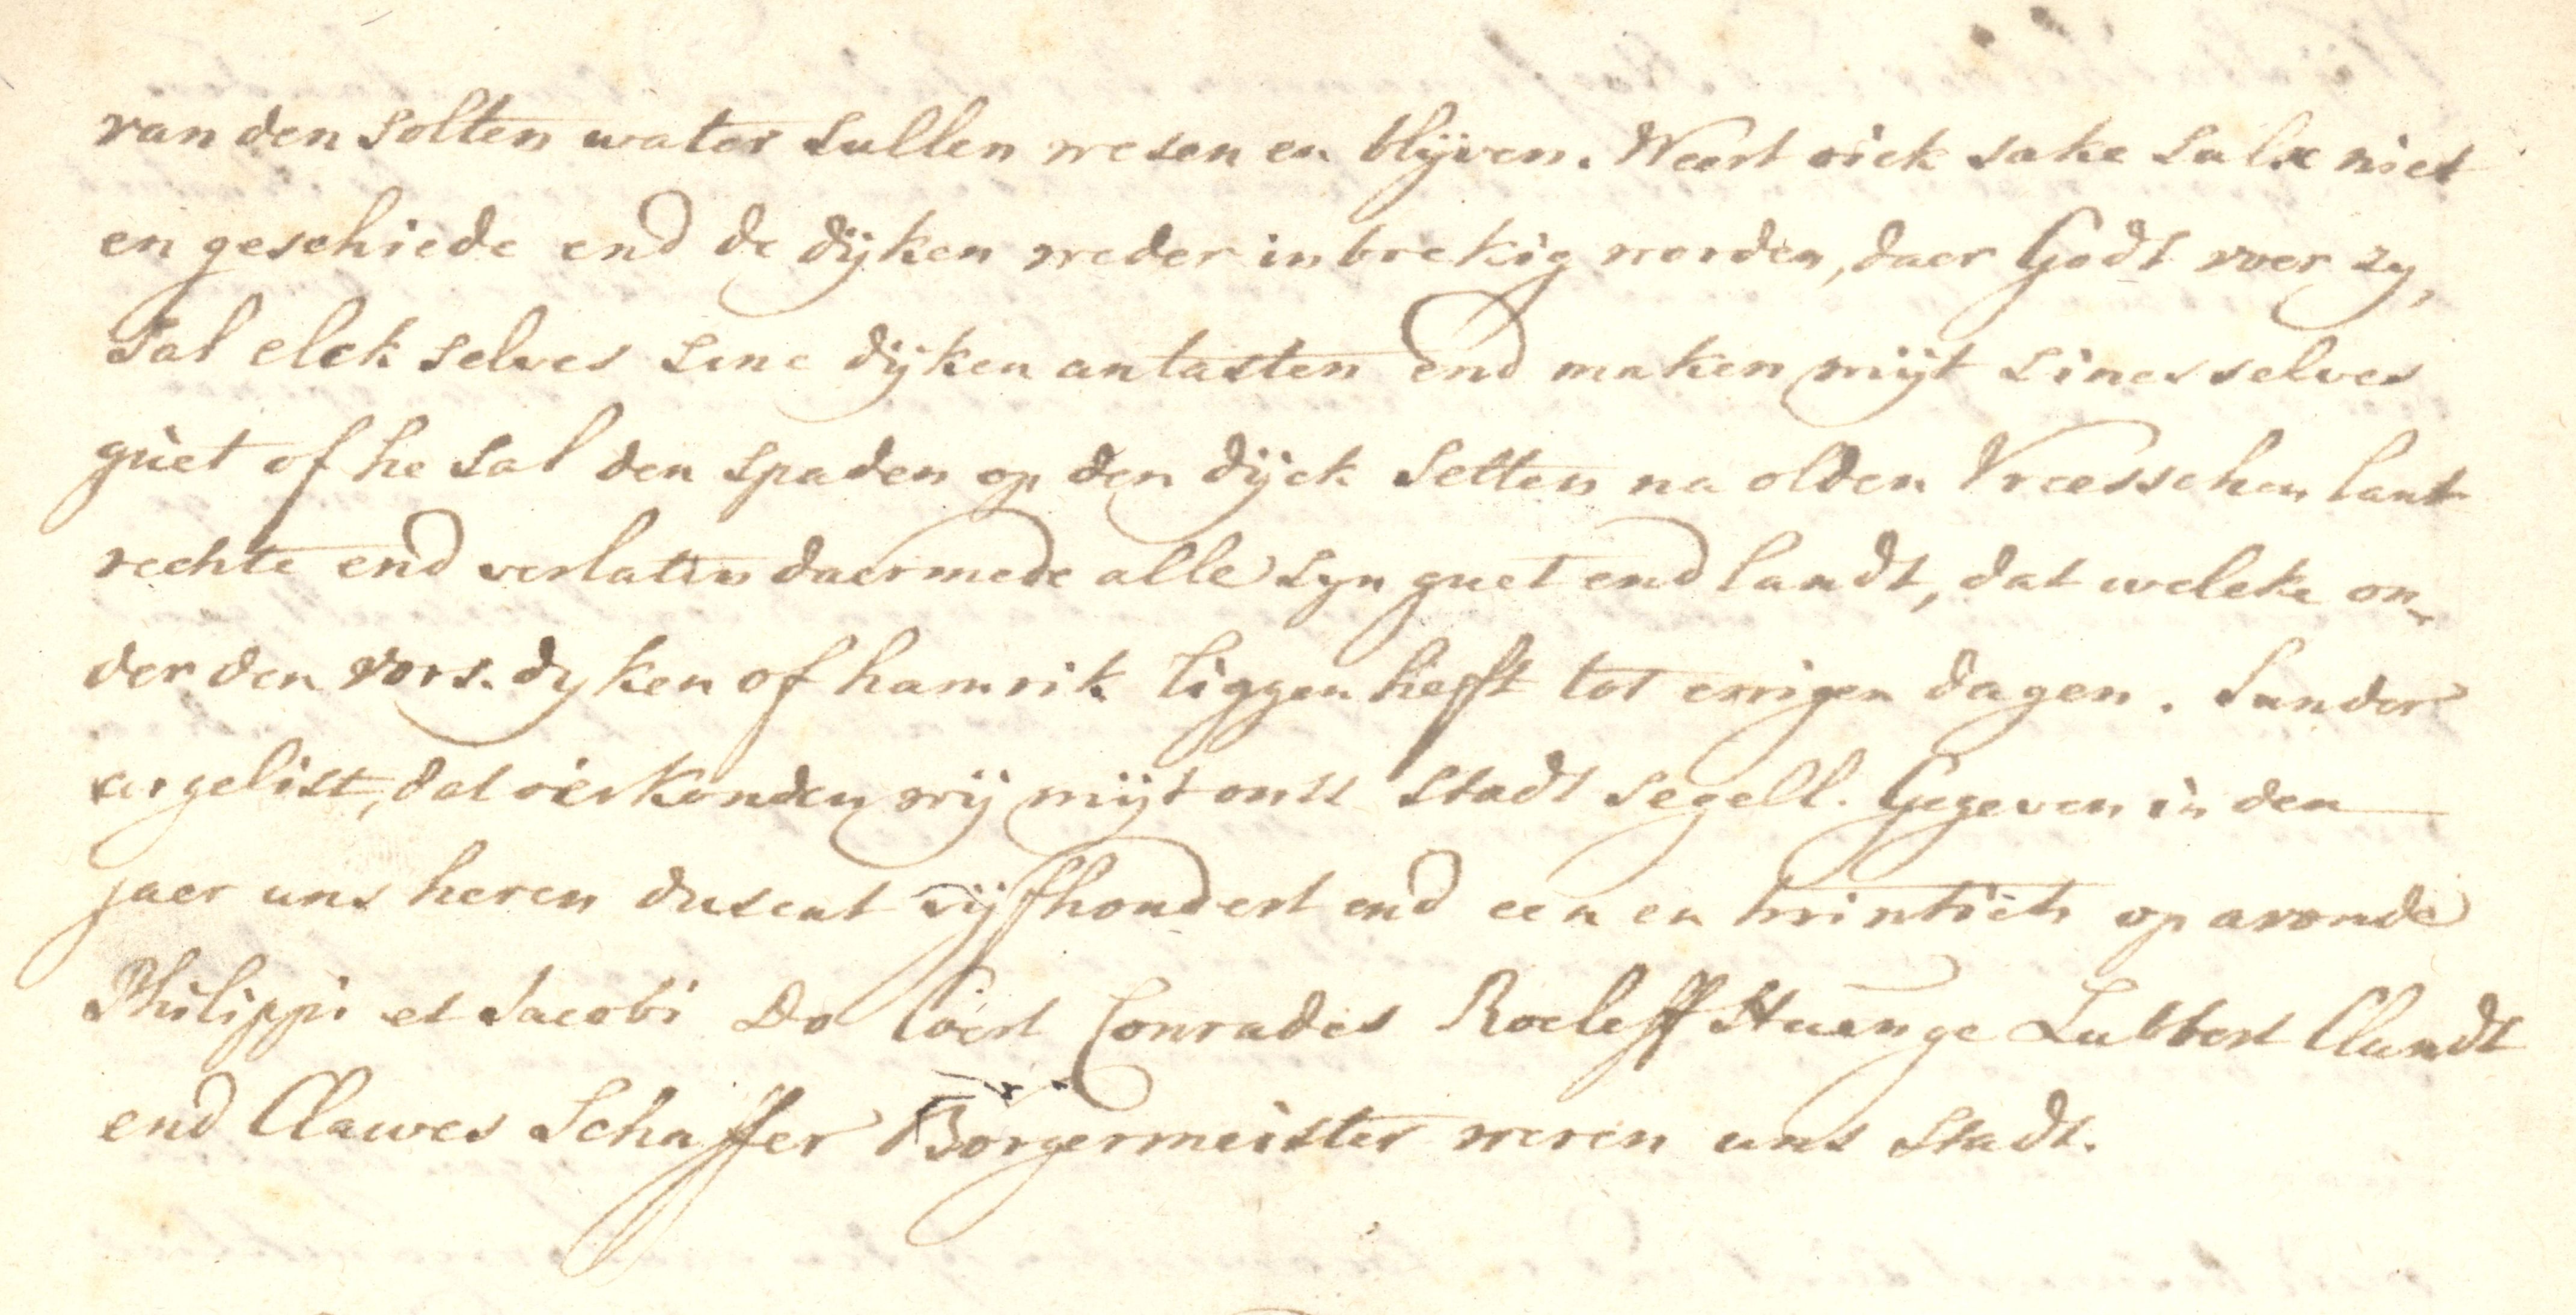 van den solten water sullen wesen en blijven. Weert oick sake sulx niet
en geschiede end de dijken weder inbrekig worden, daer Godt voer zy,
Sal elck selves sine dijken antasten end maken mijt sines selves
guet of he sal den spaden op den dijck setten na olden Vreesschen lant
rechte end verlaten daermede alle syn guet end landt, dat welcke on-
der den vors. dyken of hamrik liggen hefft tot ewigen dagen. Sunder
argelist, dat oirkonden wij mijt onss stadt segell. Gegeven in den
jaer uns heren dusent vijfhondert end een en twintich op avonde
Philippi et Jacobi Do Coert Conrades Roeleff Huenge Lubbert Clandt
end Clawes Schaffer Borgermeister weren uns stadt.